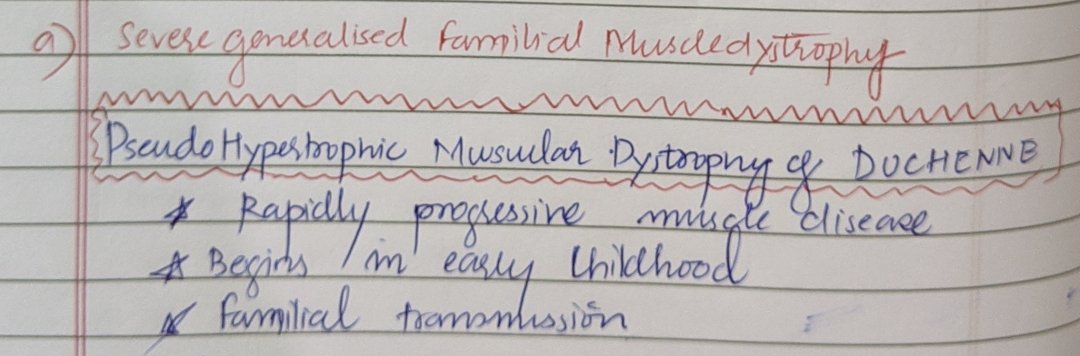 a) Severe generalised familial Muscledystrophy
Pseudo Hypertrophic Muscular Dystrophy of DUCHENNE
* Rapidly progressive muscle disease
* Begins in early Childhood
* Familial transmission